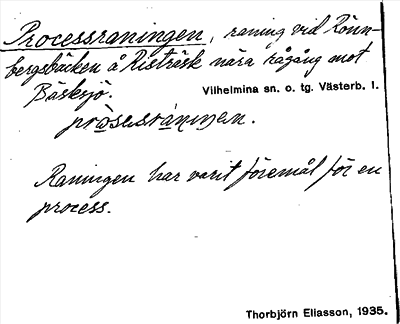 Processraningen, raning vid Rönn-
bergsbäcken å Risträsk nära rågång mot
Bäsksjö. Vilhelmina sn. o. tg. Västerb. l.
Raningen har varit föremål för en
process.
Thorbjörn Eliasson, 1935.